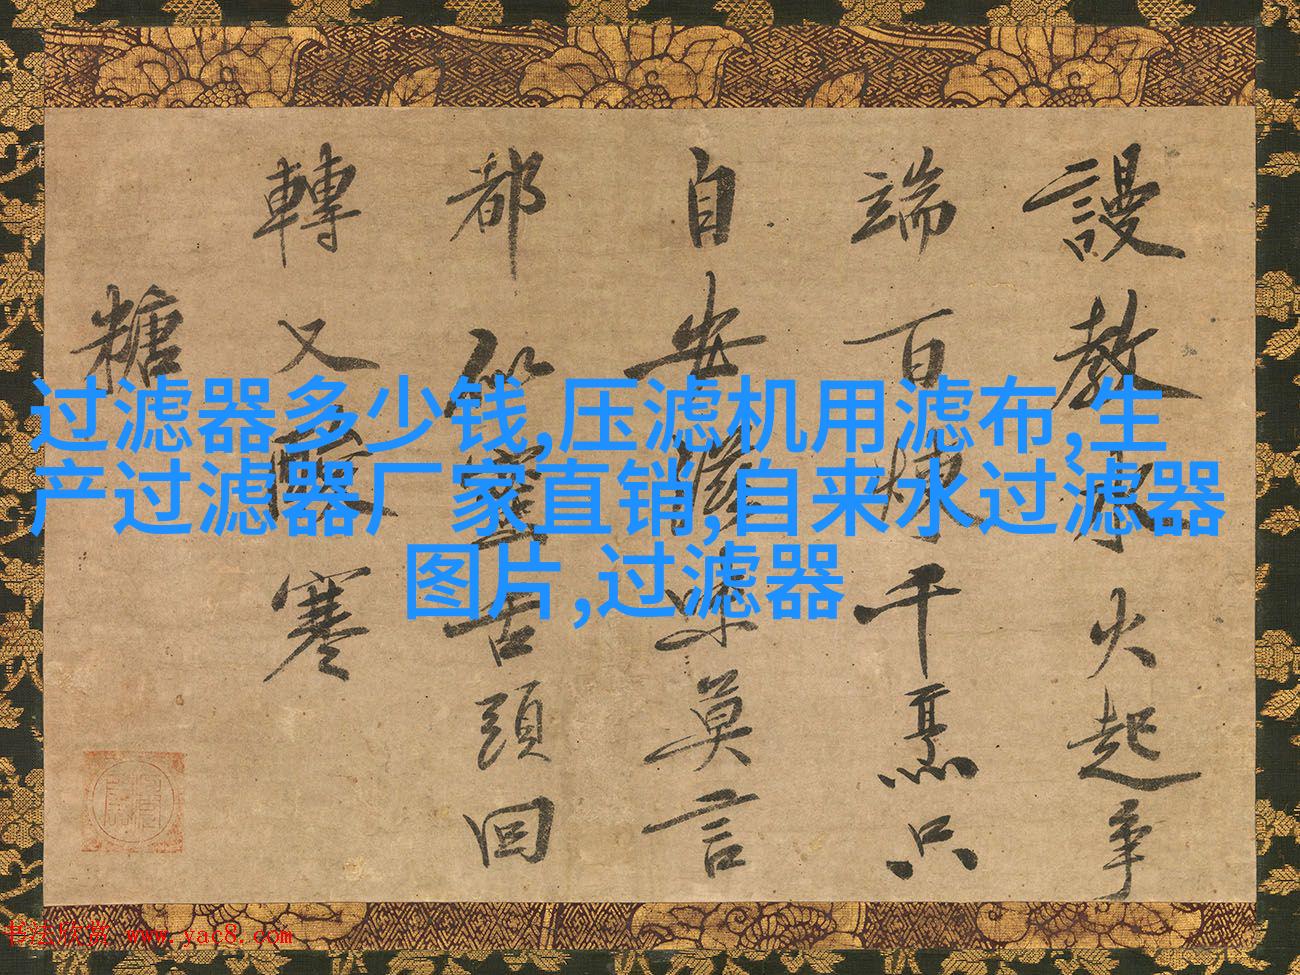 謾教水火起爭
端百煉千烹只
自安滋味莫言
都似蜜舌頭回
轉又酸寒
糖
过滤器多少钱,压滤机用滤布,生
产过滤器厂家直销,自来水过滤器
图片,过滤器
书法欣赏 www.yac8.com